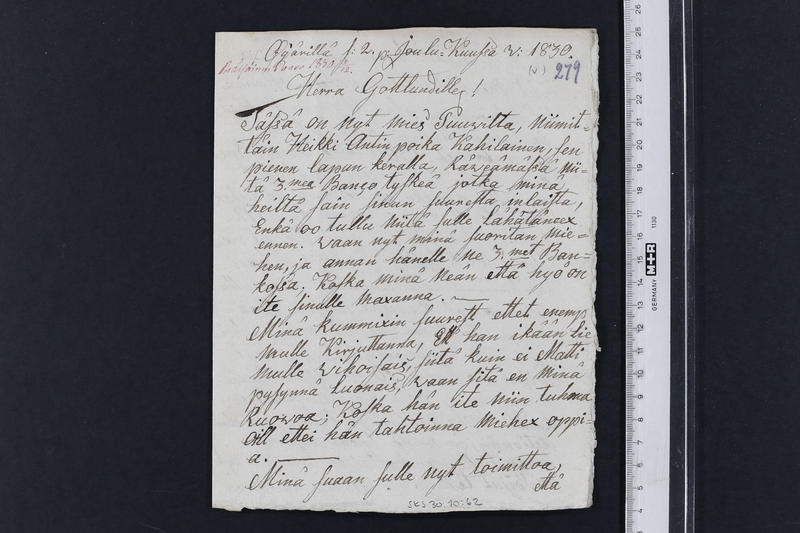 Äyärillä s: 2. p: Joulu-Kuussa v: 1830.
Räisäinen Paavo 1830 2/12.
(V) 279
Herra Gottlundille!
Tässä on nyt mies Suuvilta, Nimit-
täin Heikki Antin poika Kahilainen, sen
pienen lapun keralla, Käweämässä nii-
tä 3. mea Banco tyskeä jotka minä
heiltä sain sinun suuresta inlaista,
Enkä oo tullu niitä sulle lähätäneex
ennen. waan nyt minä suoritan mie-
hen, ja annan hänelle ne 3. met Ban-
kossa. Koska minä Neän että hyö on
ite sinulle maxanna.
Minä kummixin suurest ettet enemp
mulle Kirjuttanna, Ett han ikään lie
mulle vihoisais, siitä kuin ei Matti
pysynnä luonais, waan sitä en minä
kuowoa; Koska hän ite niin tuhma
oill ettei hän tahtoinna Miehex oppi-
a.
Minä suaan sulle nyt toimittoa,
että
SKS 30:10:62
MADE IN GERMANY M+R 1130